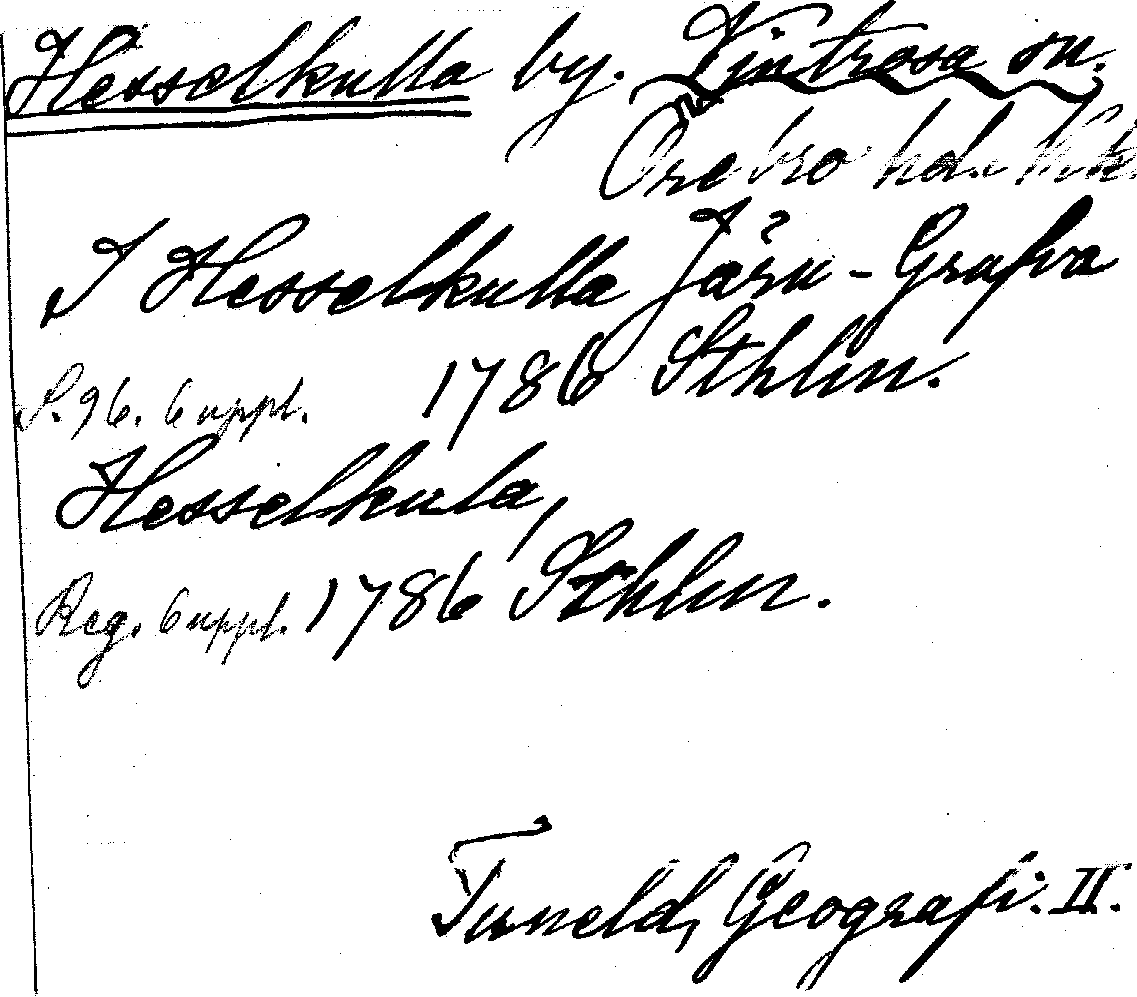 Hesselkulla by. Vintrosa sn.
Örebro hd.
I Hesselkulla Järn-Grufva
S. 96. 6 uppl. 1786 Sthlm.
Hesselkula,
Reg. 6 uppl. 1786 Sthlm.
Tuneld, Geografi. II.